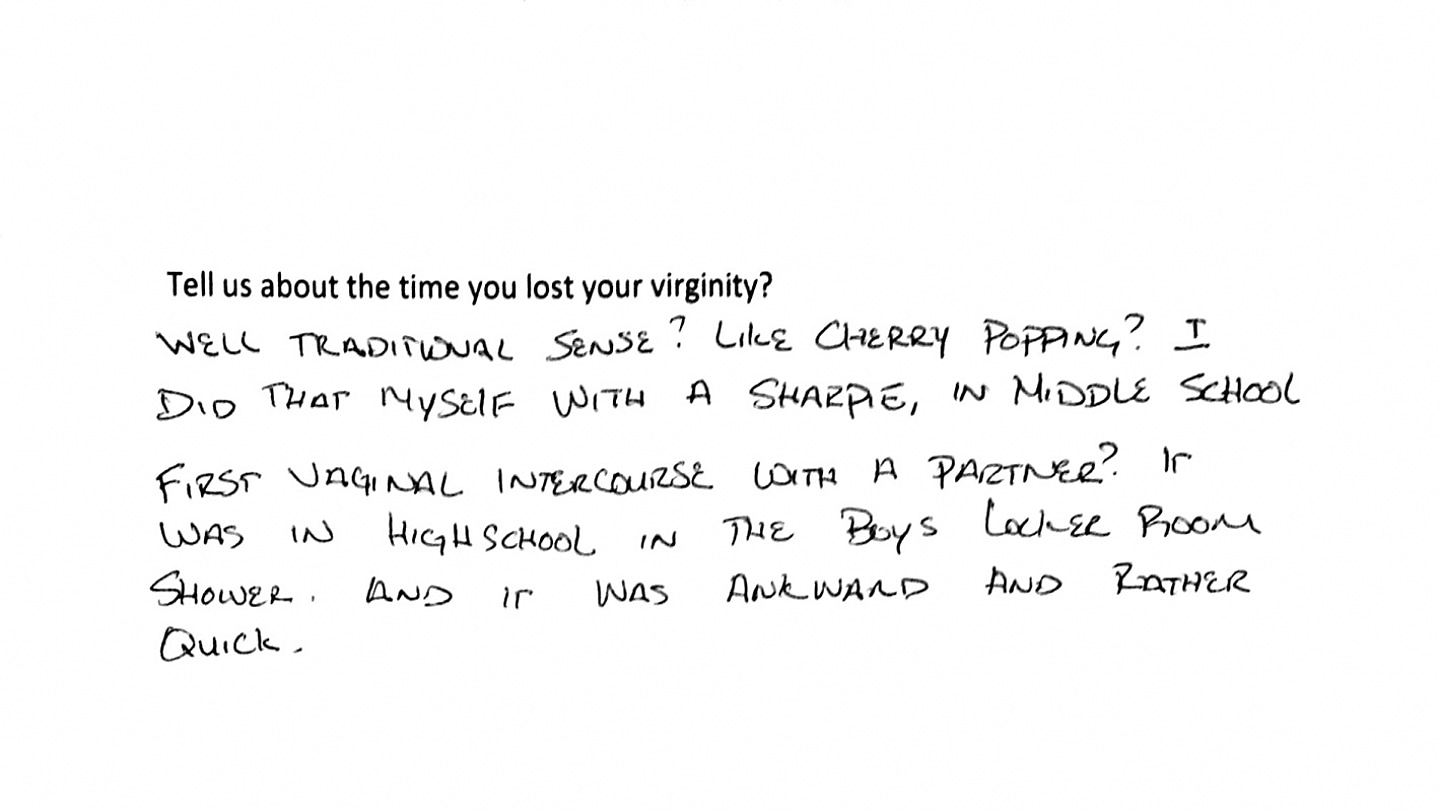 Tell us about the time you lost your virginity?
WELL TRADITIONAL SENSE? LIKE CHERRY POPPING? I
DID THAT MYSELF WITH A SHARPIE, IN MIDDLE SCHOOL
FIRST VAGINAL INTERCOURSE WITH A PARTNER? IT
WAS IN HIGHSCHOOL IN THE BOYS LOCKER ROOM
SHOWER. AND IT WAS ANKWARD AND RATHER
QUICK.